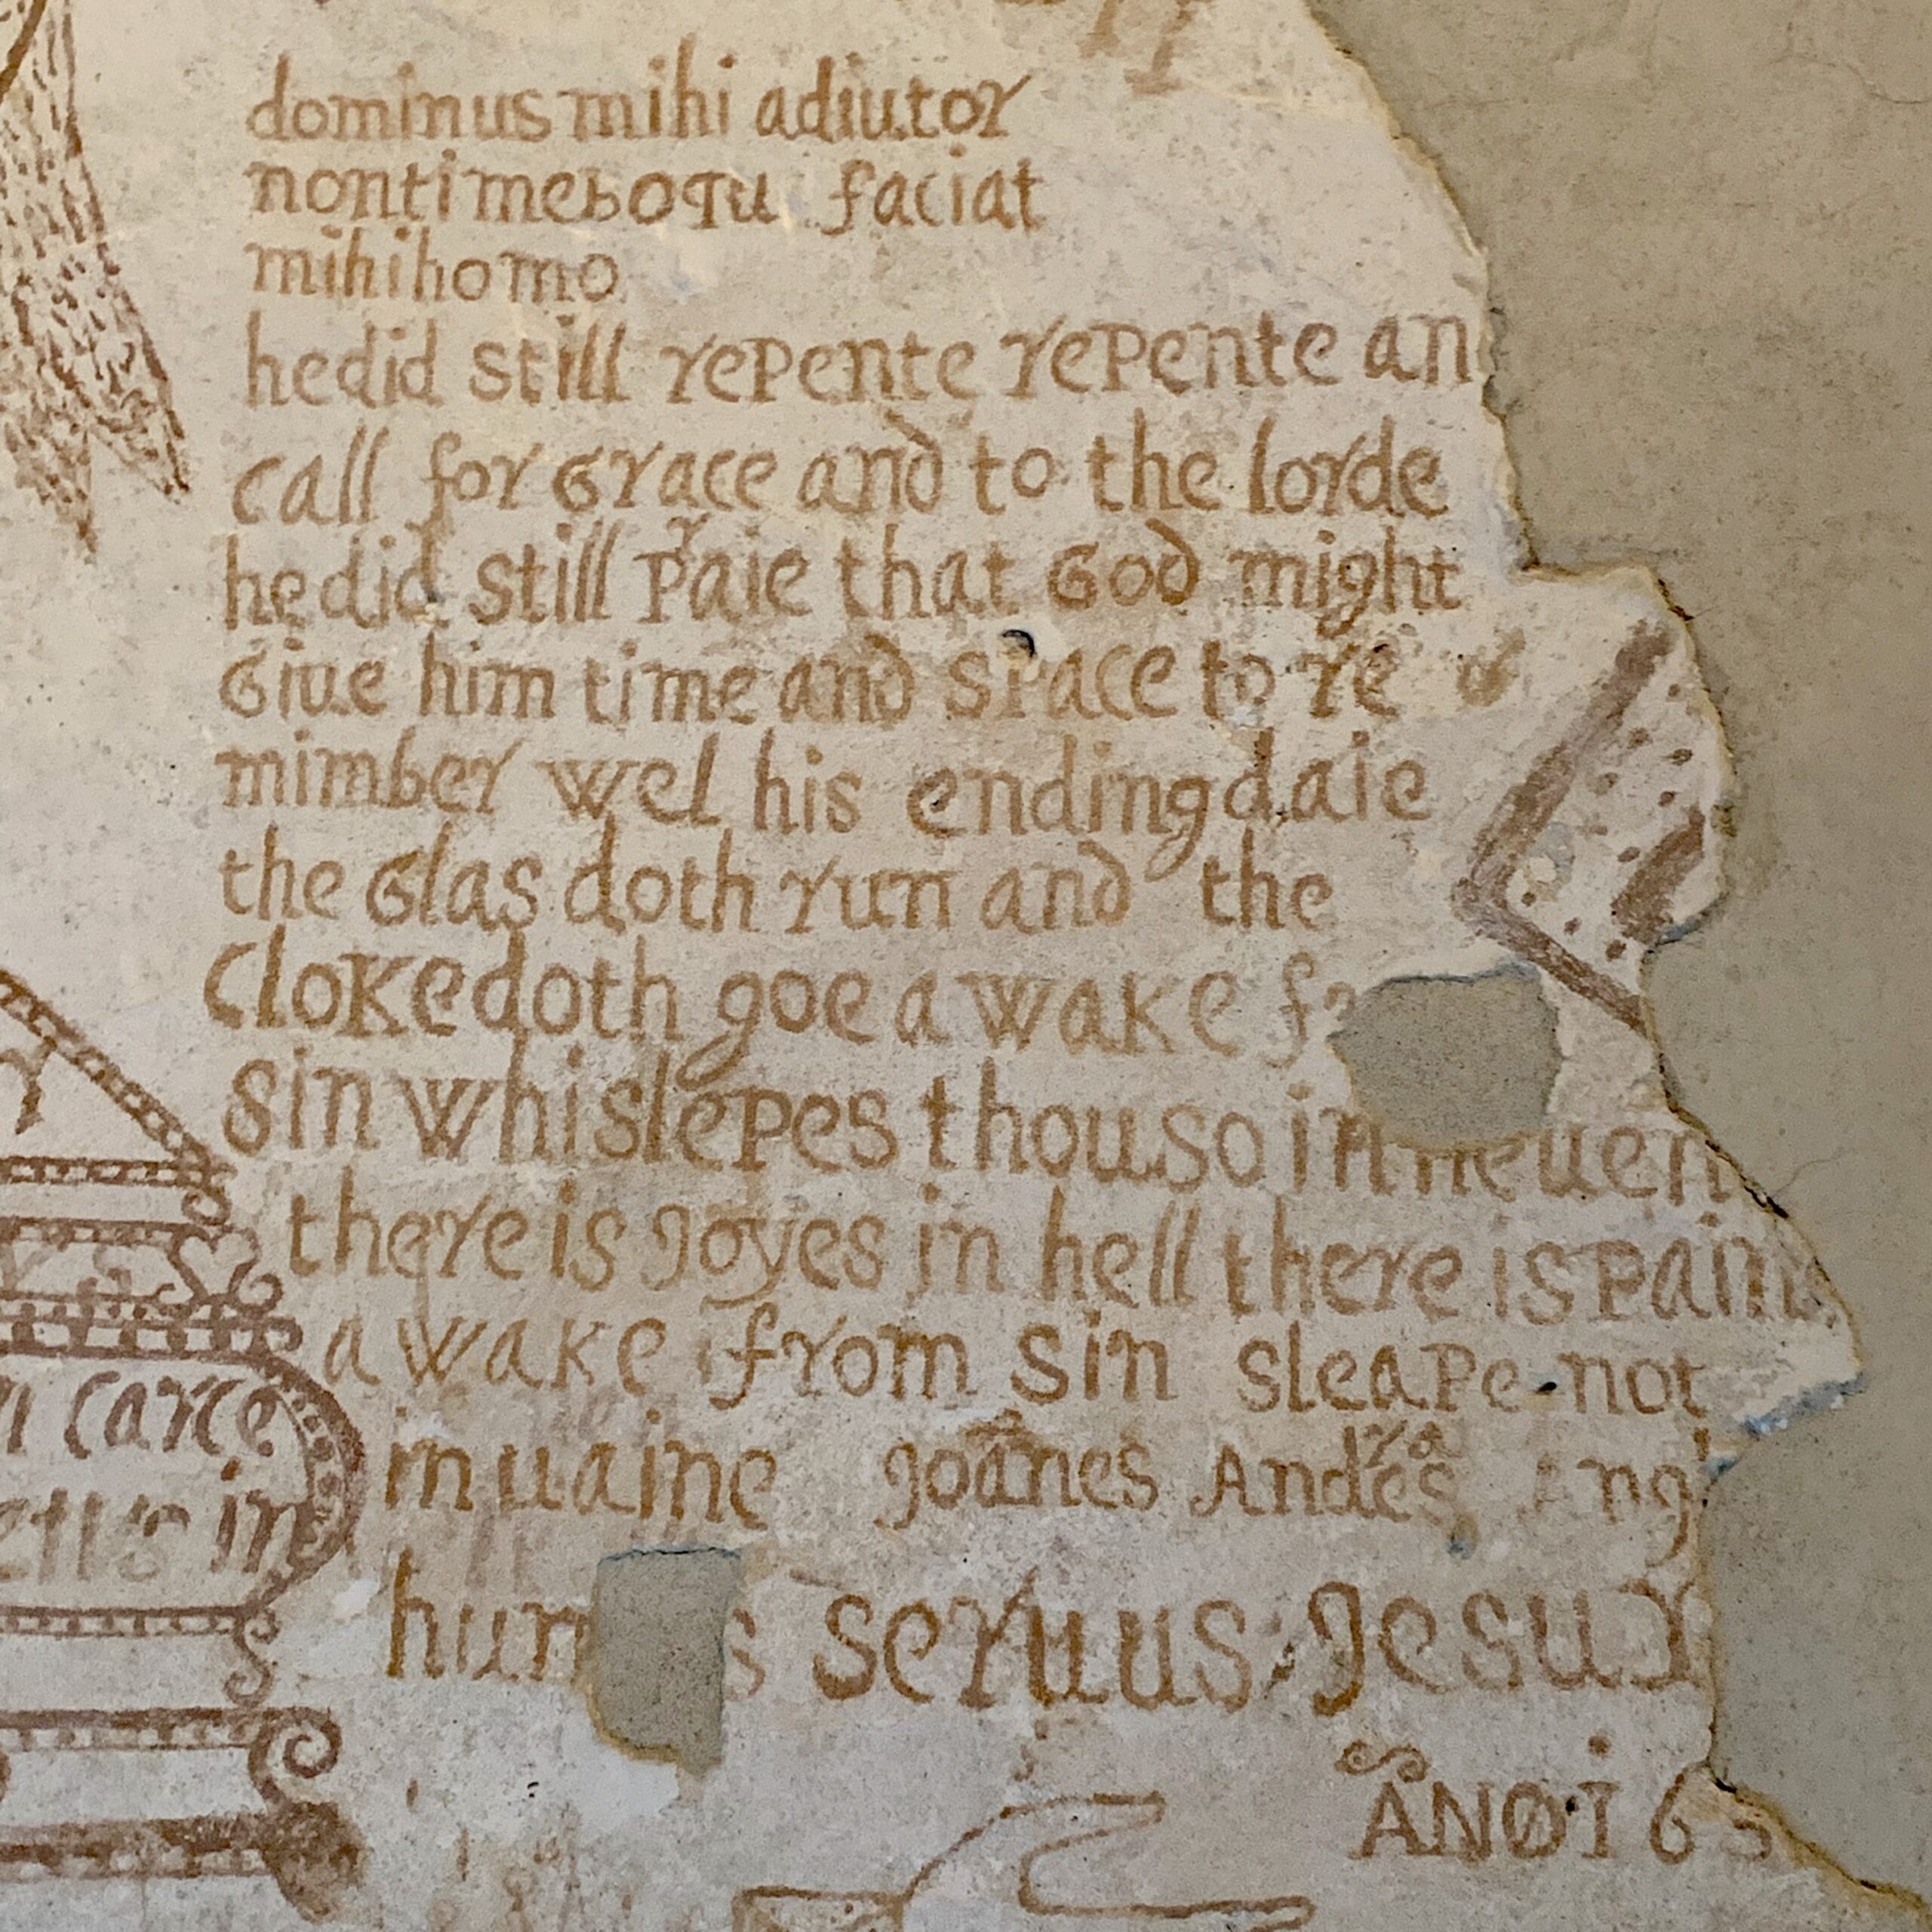 dominus mihi adiutor
non timeboqu faciat
mihi homo
he did still repente repente an
call for Grace and to the lorde
he did still praie that God might
Giue him time and space to re
mimber wel his ending daie
the Glas doth run and the
Cloke doth goe awake
sin whi slepes thou so in heuen
there is Joyes in hell there is pains
awake from sin sleape not
in carce
in uaine Joanes Andreas
in
seruus Jesu
ANO 16